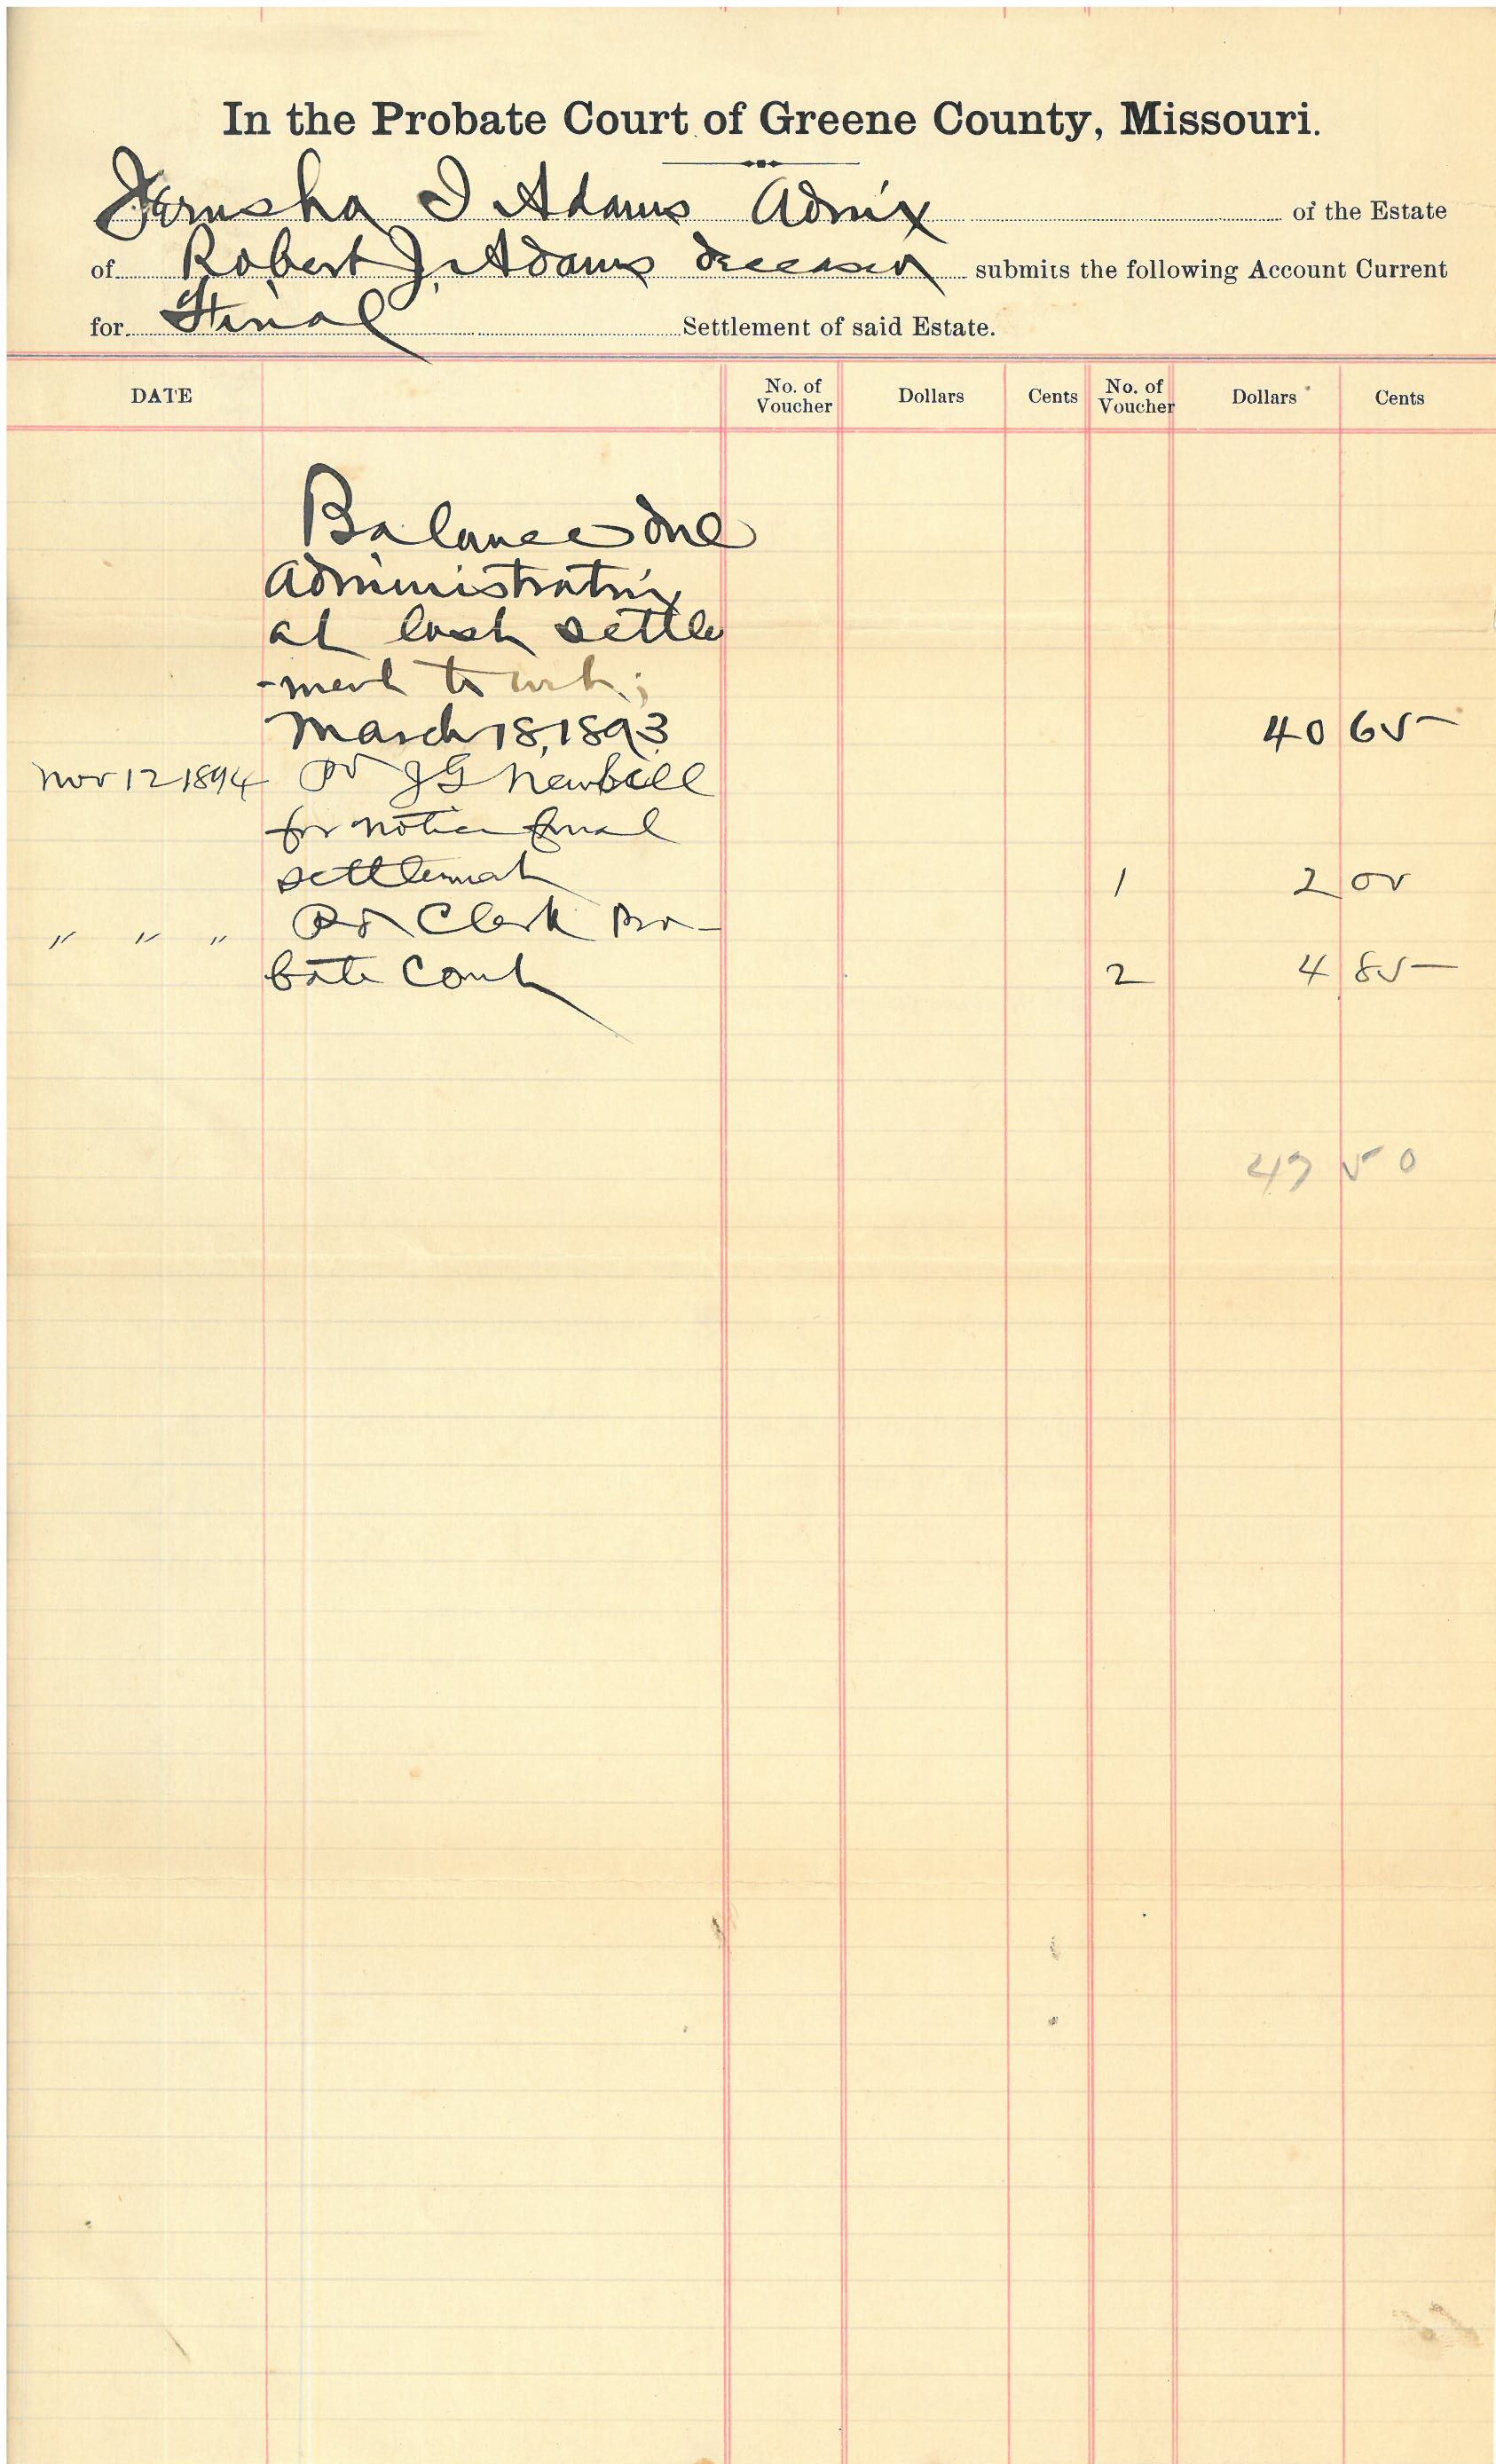 In the Probate Court of Greene County, Missouri.
Jerusha I Adams Admx of the Estate
of Robert J. Adams deceased submits the following Account Current
for Final Settlement of said Estate.
DATE No. of Voucher Dollars Cents No. of Voucher Dollars Cents
Balance due
administratrix
at last settle
-ment to wit;
March 18, 1893 40 65
Nov 12 1894 Pd J G Newbill
for notice final
settlement 1 2 00
" " " Pd Clerk Pro-
bate Court 2 4 85
47 50